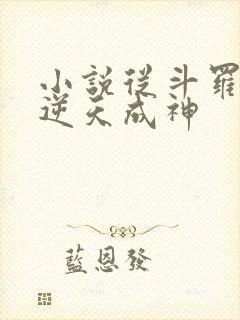 小說從斗羅
逆天成神
藍恩發